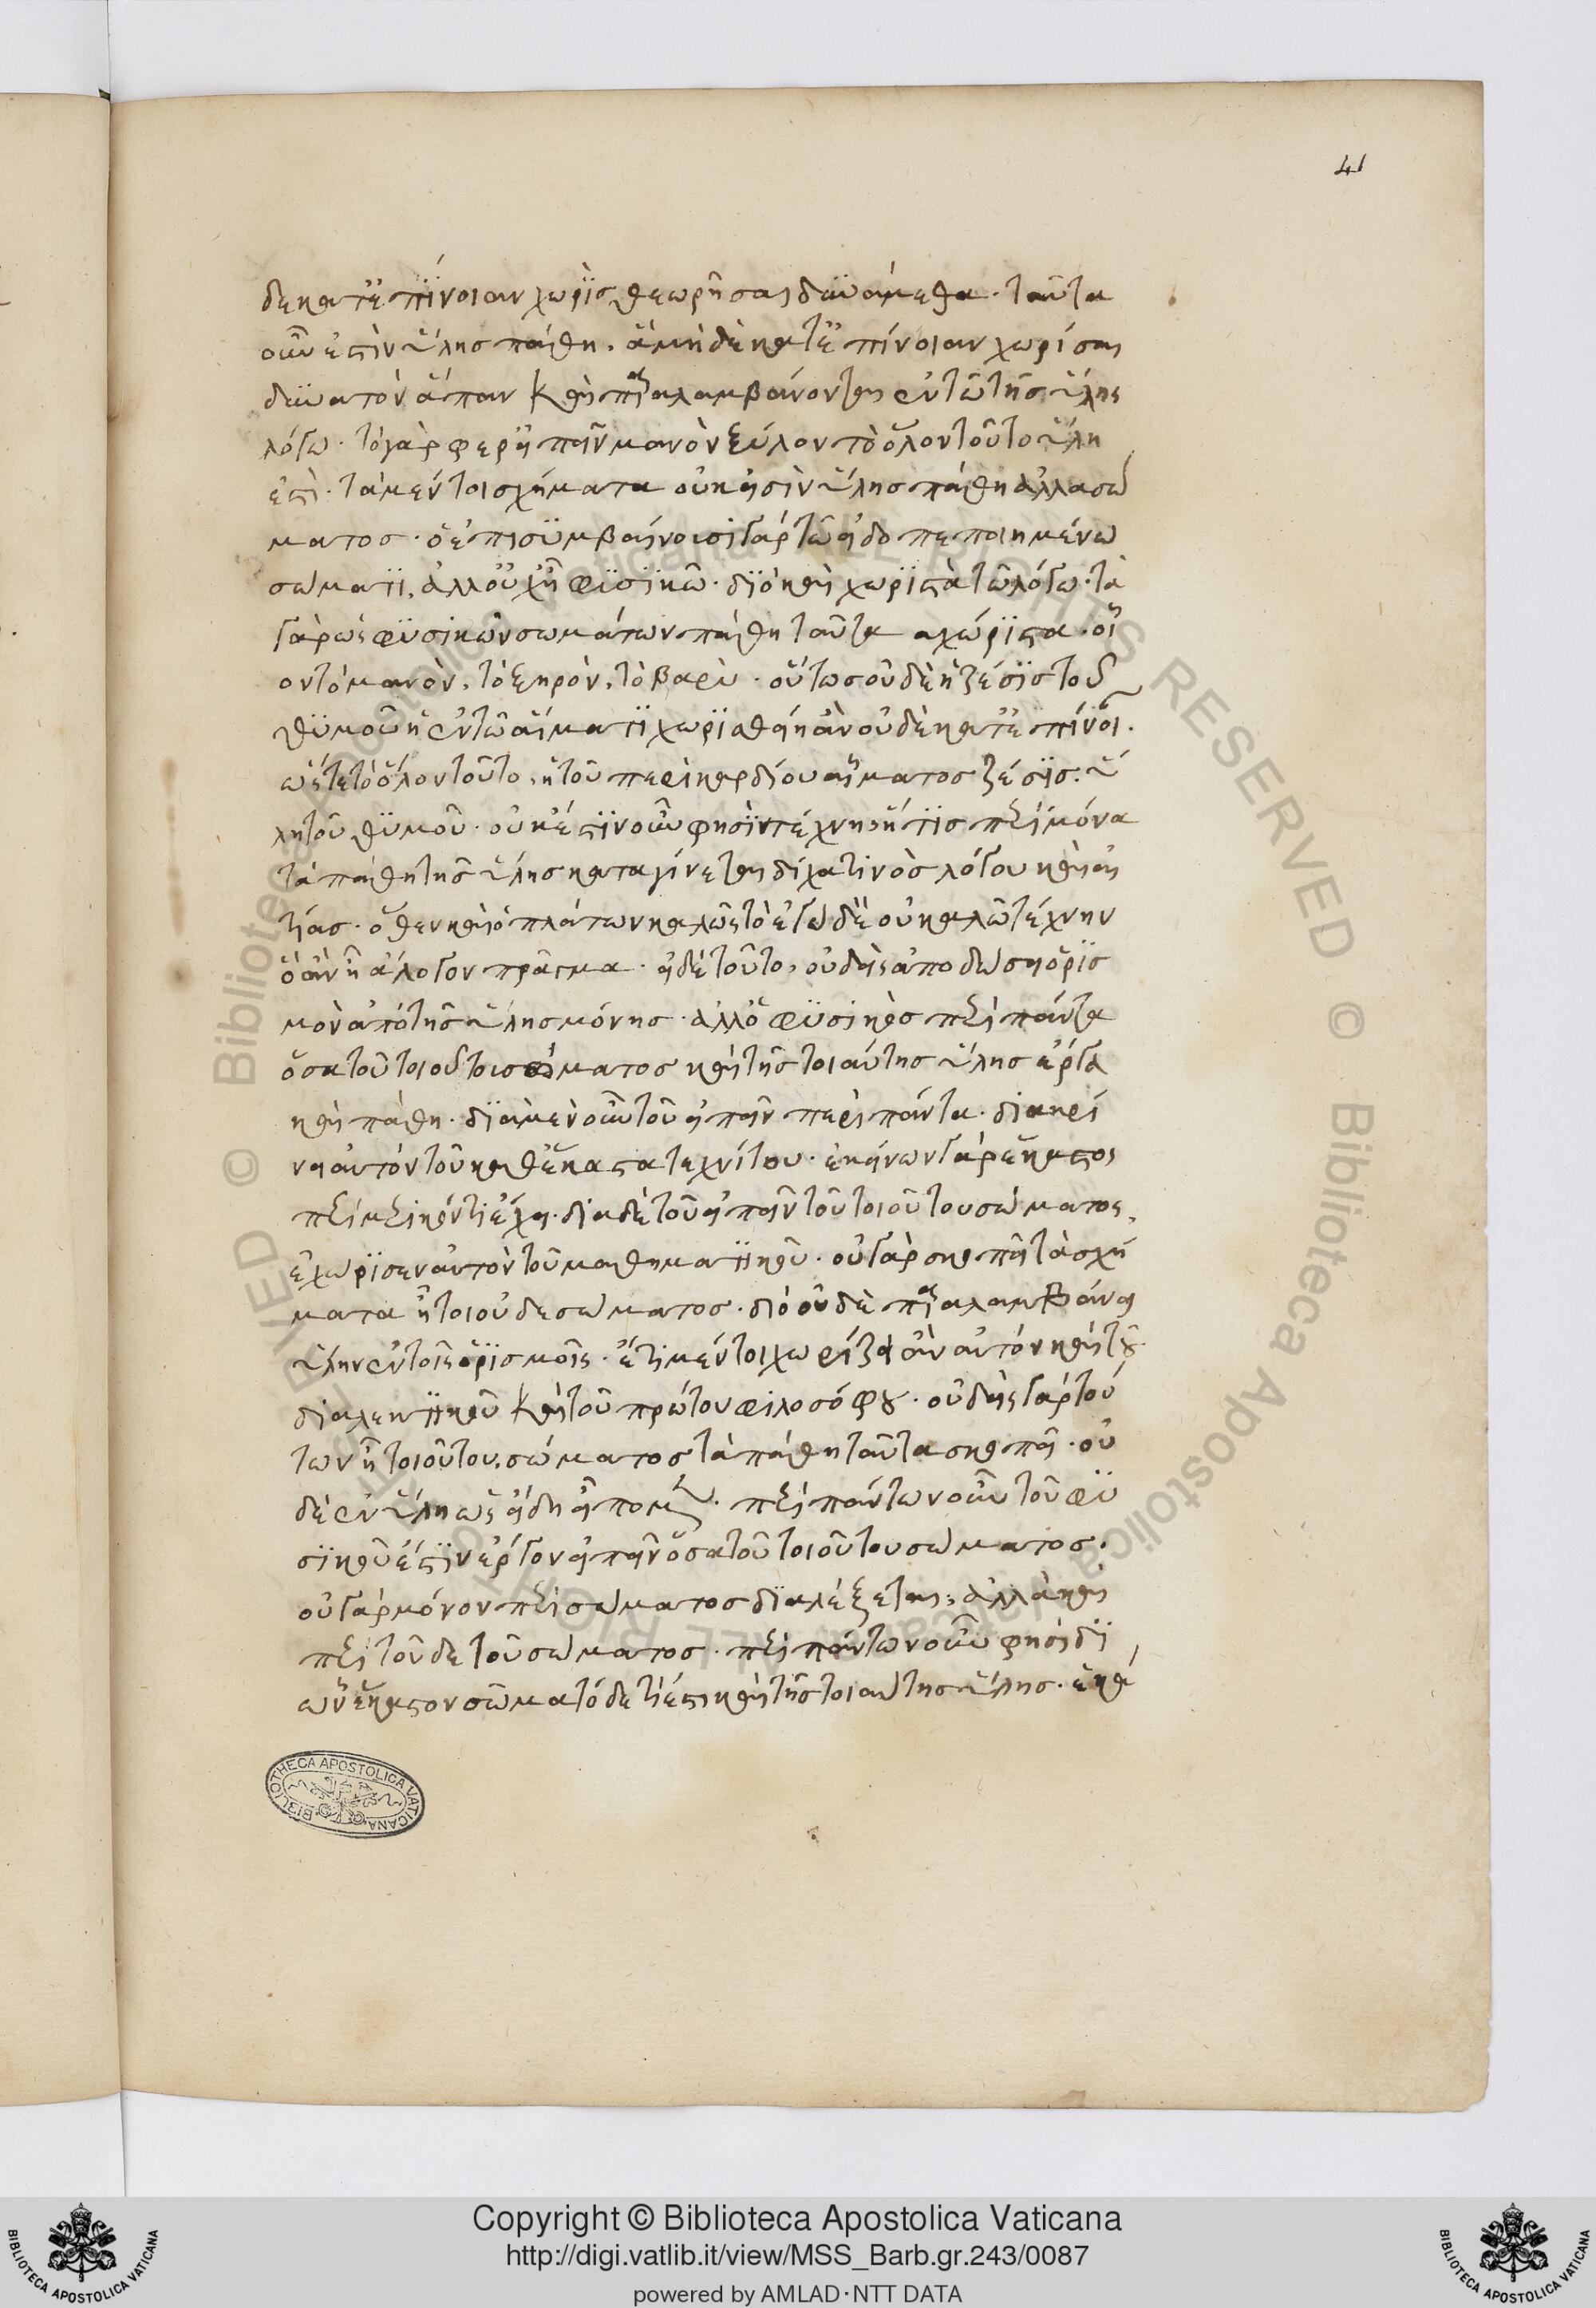 41
δὲ κατ' ἐπίνοιαν χωρὶς θεωρῆσαι δυνάμεθα. ταῦτα
οὖν ἐστὶν ὕλης πάθη. ἃ μηδὲ κατ' ἐπίνοιαν χωρίσαι
δυνατὸν ἅπαν καὶ παραλαμβάνονται ἐν τῶ τῆς ὕλης
λόγω. τὸ γὰρ φερ' εἰπεῖν μανὸν ξύλον τὸ ὅλον τοῦτο ὕλη
ἐστὶ. τὰ μέντοι σχήματα οὐκ εἰσὶν ὕλης πάθη ἀλλὰ σώ
ματος. ἐπισυμβαίνουσι γὰρ τῶ εἰδοπεποιημένω
σώματι. ἀλλ' οὐχ ἧ φυσικῶ. διὸ καὶ χωριστὰ τῶ λόγω. τὰ
γὰρ ὡς φυσικῶν σωμάτων πάθη ταῦτα ἀχώριστα. οἷ
ον τὸ μανὸν, τὸ ξηρὸν, τὸ βαρὺ. οὕτως οὐδὲ ἡ ζέσις τοῦ
θυμοῦ ἡ ἐν τῶ αἵματι χωρισθείη ἂν οὐδὲ κατ' ἐπίνοι.
ὥστε τὸ ὅλον τοῦτο, ἡ τοῦ περικαρδίου αἵματος ζέσις. ὕ
λη τοῦ θυμοῦ. οὐκ ἔστιν οὖν φησὶν τέχνη, ἥτις περὶ μόνα
τὰ πάθη τῆς ὕλης καταγίνεται δίχα τινὸς λόγου καὶ αἰ
τίας. ὅθεν καὶ ὁ πλάτων καλῶς τὸ ἐγὼ δὲ οὐ καλῶ τέχνην
ὃ ἂν ἦ ἄλογον πρᾶγμα. εἰ δὲ τοῦτο, οὐδεὶς ἀποδώσει ὁρισ
μὸν ἀπὸ τῆς ὕλης μόνης. ἀλλ' ὁ φυσικὸς περὶ πάντα
ὅσα τοῦ τοιουτοι σώματος καὶ τῆς τοιαύτης ὕλης ἔργα
καὶ πάθη. διὰ μὲν οὖν τοῦ εἰπεῖν περὶ πάντα. διακρί
νει αὐτὸν τοῦ καθ' ἕκαστα τεχνίτου. ἐκείνων γὰρ ἕκαστος
περὶ μερικόν τι ἔχει. διὰ δὲ τοῦ εἰπεῖν τοῦ τοιούτου σώματος,
ἐχώρισεν αὐτὸν τοῦ μαθηματικοῦ. οὐ γὰρ σκοπεῖ τὰ σχή
ματα ἧ τοιοῦδε σώματος. διὸ οὐδὲ παραλαμβάνει
ὕλην ἐν τοῖς ὁρισμοῖς. ἔτι μέντοι χωρίζει ἂν αὐτόν καὶ τοῦ
διαλεκτικοῦ καὶ τοῦ πρώτου φιλοσόφου. οὐδεὶς γὰρ τού
των ἧ τοιούτου σώματος τὰ πάθη ταῦτα σκοπεῖ. οὐ
δὲ ἐν ὕλη ὡς ἤδη εἴπομεν. περὶ πάντων οὖν τοῦ φυ
σικοῦ ἐστὶν ἔργον εἰπεῖν ὅσα τοῦ τοιούτου σώματος.
οὐ γὰρ μόνον περὶ σώματος διαλέξεται, ἀλλὰ καὶ
περὶ τοῦδε τοῦ σώματος. περὶ πάντων οὖν φησὶ δι
ὧν ἕκαστον σῶμα τόδε τί ἐστι καὶ τῆς τοιαύτης ὕλης. ἑκα
BIBLIOTHECA APOSTOLICA VATICANA
© Biblioteca Apostolica Vaticana ALL RIGHTS RESERVED
Copyright © Biblioteca Apostolica Vaticana
http://digi.vatlib.it/view/MSS_Barb.gr.243/0087
powered by AMLAD·NTT DATA
BIBLIOTECA APOSTOLICA VATICANA
BIBLIOTECA APOSTOLICA VATICANA